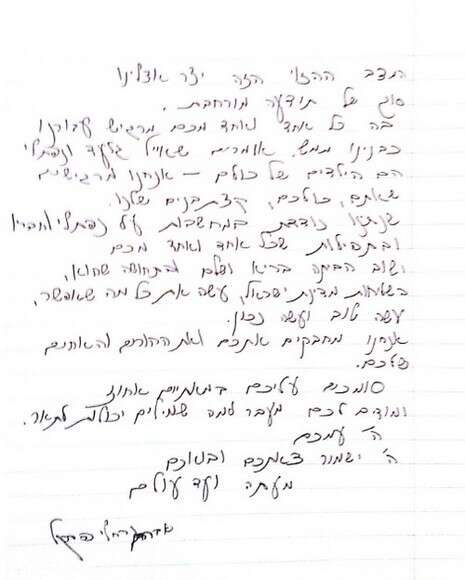 המצב ההזוי הזה יצר אצלינו
סוג של תודעה מורחבת.
בה כל אחד ואחד מכם מרגיש עבורנו
כבנינו ממש. אומרים שאייל גלעד ונפתלי
הם הילדים של כולם – אנחנו מרגישים
שאתם, כולכם, קצת בנים שלנו.
שנתנו נודדת במחשבות על נפתלי וחבריו
ובתפילות שכל אחד ואחד מכם
ישוב הביתה בריא ושלם ובתחושה שהוא,
בשליחות מדינת ישראל, עשה את כל מה שאפשר,
עשה טוב ועשה נכון.
אנחנו מחבקים אתכם ואת ההורים והאחים
שלכם.
סומכים עליכם במאתיים אחוז
ומודים לכם מעבר למה שמילים יכולות לתאר.
ה' עמכם
ה' ישמור צאתכם ובואכם
מעתה ועד עולם